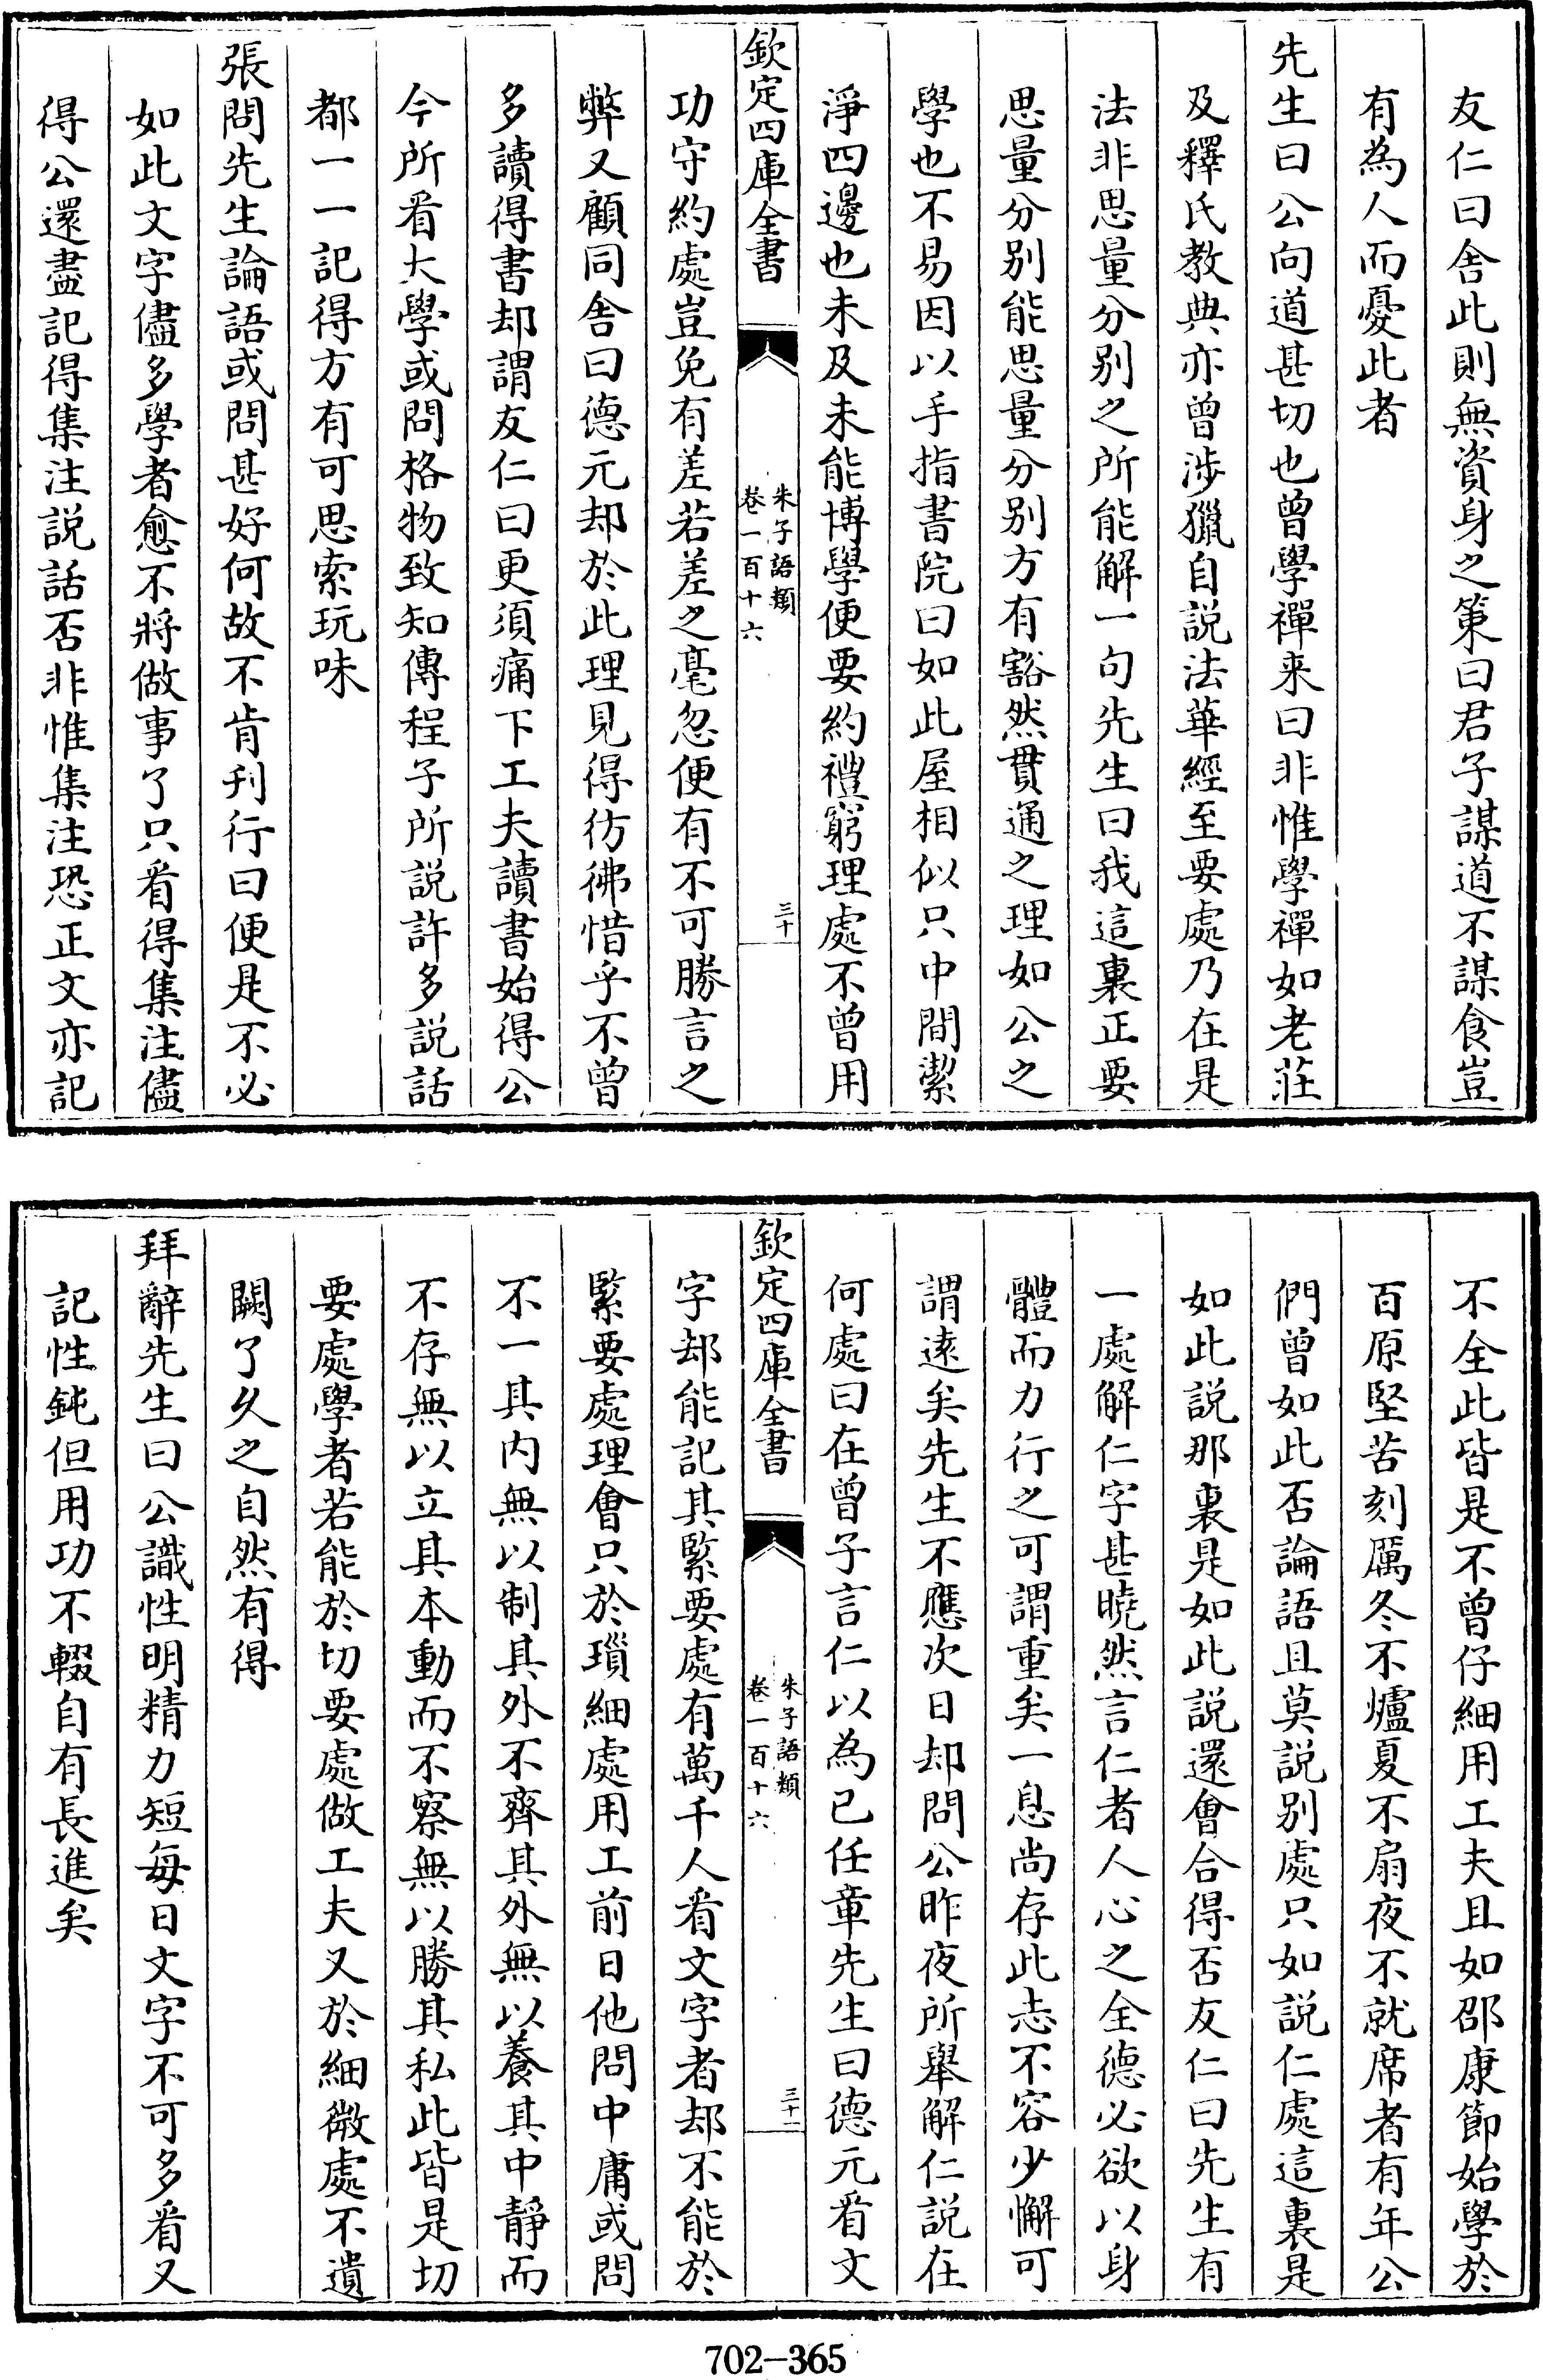 友仁曰舎此則無資身之策曰君子謀道不謀食豈
有為人而憂此者
先生曰公向道甚切也曾學禪来曰非惟學禪如老莊
及釋氏教典亦曾涉獵自説法華經至要處乃在是
法非思量分别之所能解一句先生曰我這裏正要
思量分别能思量分别方有豁然貫通之理如公之
學也不易因以手指書院曰如此屋相似只中間潔
淨四邊也未及未能博學便要約禮窮理處不曾用
欽定四庫全書
朱子語類
卷一百十六
三十
功守約處豈免有差若差之毫忽便有不可勝言之
弊又顧同舍曰德元却於此理見得彷彿惜乎不曾
多讀得書却謂友仁曰更須痛下工夫讀書始得公
今所看大學或問格物致知傳程子所説許多説話
都一一記得方有可思索玩味
張問先生論語或問甚好何故不肯刋行曰便是不必
如此文字儘多學者愈不將做事了只看得集注儘
得公還盡記得集注説話否非惟集注恐正文亦記
不全此皆是不曾仔細用工夫且如邵康節始學於
百原堅苦刻厲冬不爐夏不扇夜不就席者有年公
們曾如此否論語且莫説别處只如説仁處這裏是
如此説那裏是如此説還會合得否友仁曰先生有
一處解仁字甚曉然言仁者人心之全德必欲以身
體而力行之可謂重矣一息尚存此志不容少懈可
謂逺矣先生不應次日却問公昨夜所舉解仁説在
何處曰在曾子言仁以為已任章先生曰德元看文
欽定四庫全書
朱子語類
卷一百十六
三十一
字却能記其緊要處有萬千人看文字者却不能於
緊要處理會只於瑣細處用工前日他問中庸或問
不一其内無以制其外不齊其外無以養其中靜而
不存無以立其本動而不察無以勝其私此皆是切
要處學者若能於切要處做工夫又於細微處不遺
闕了久之自然有得
拜辭先生曰公識性明精力短每日文字不可多看又
記性鈍但用功不輟自有長進矣
702-365